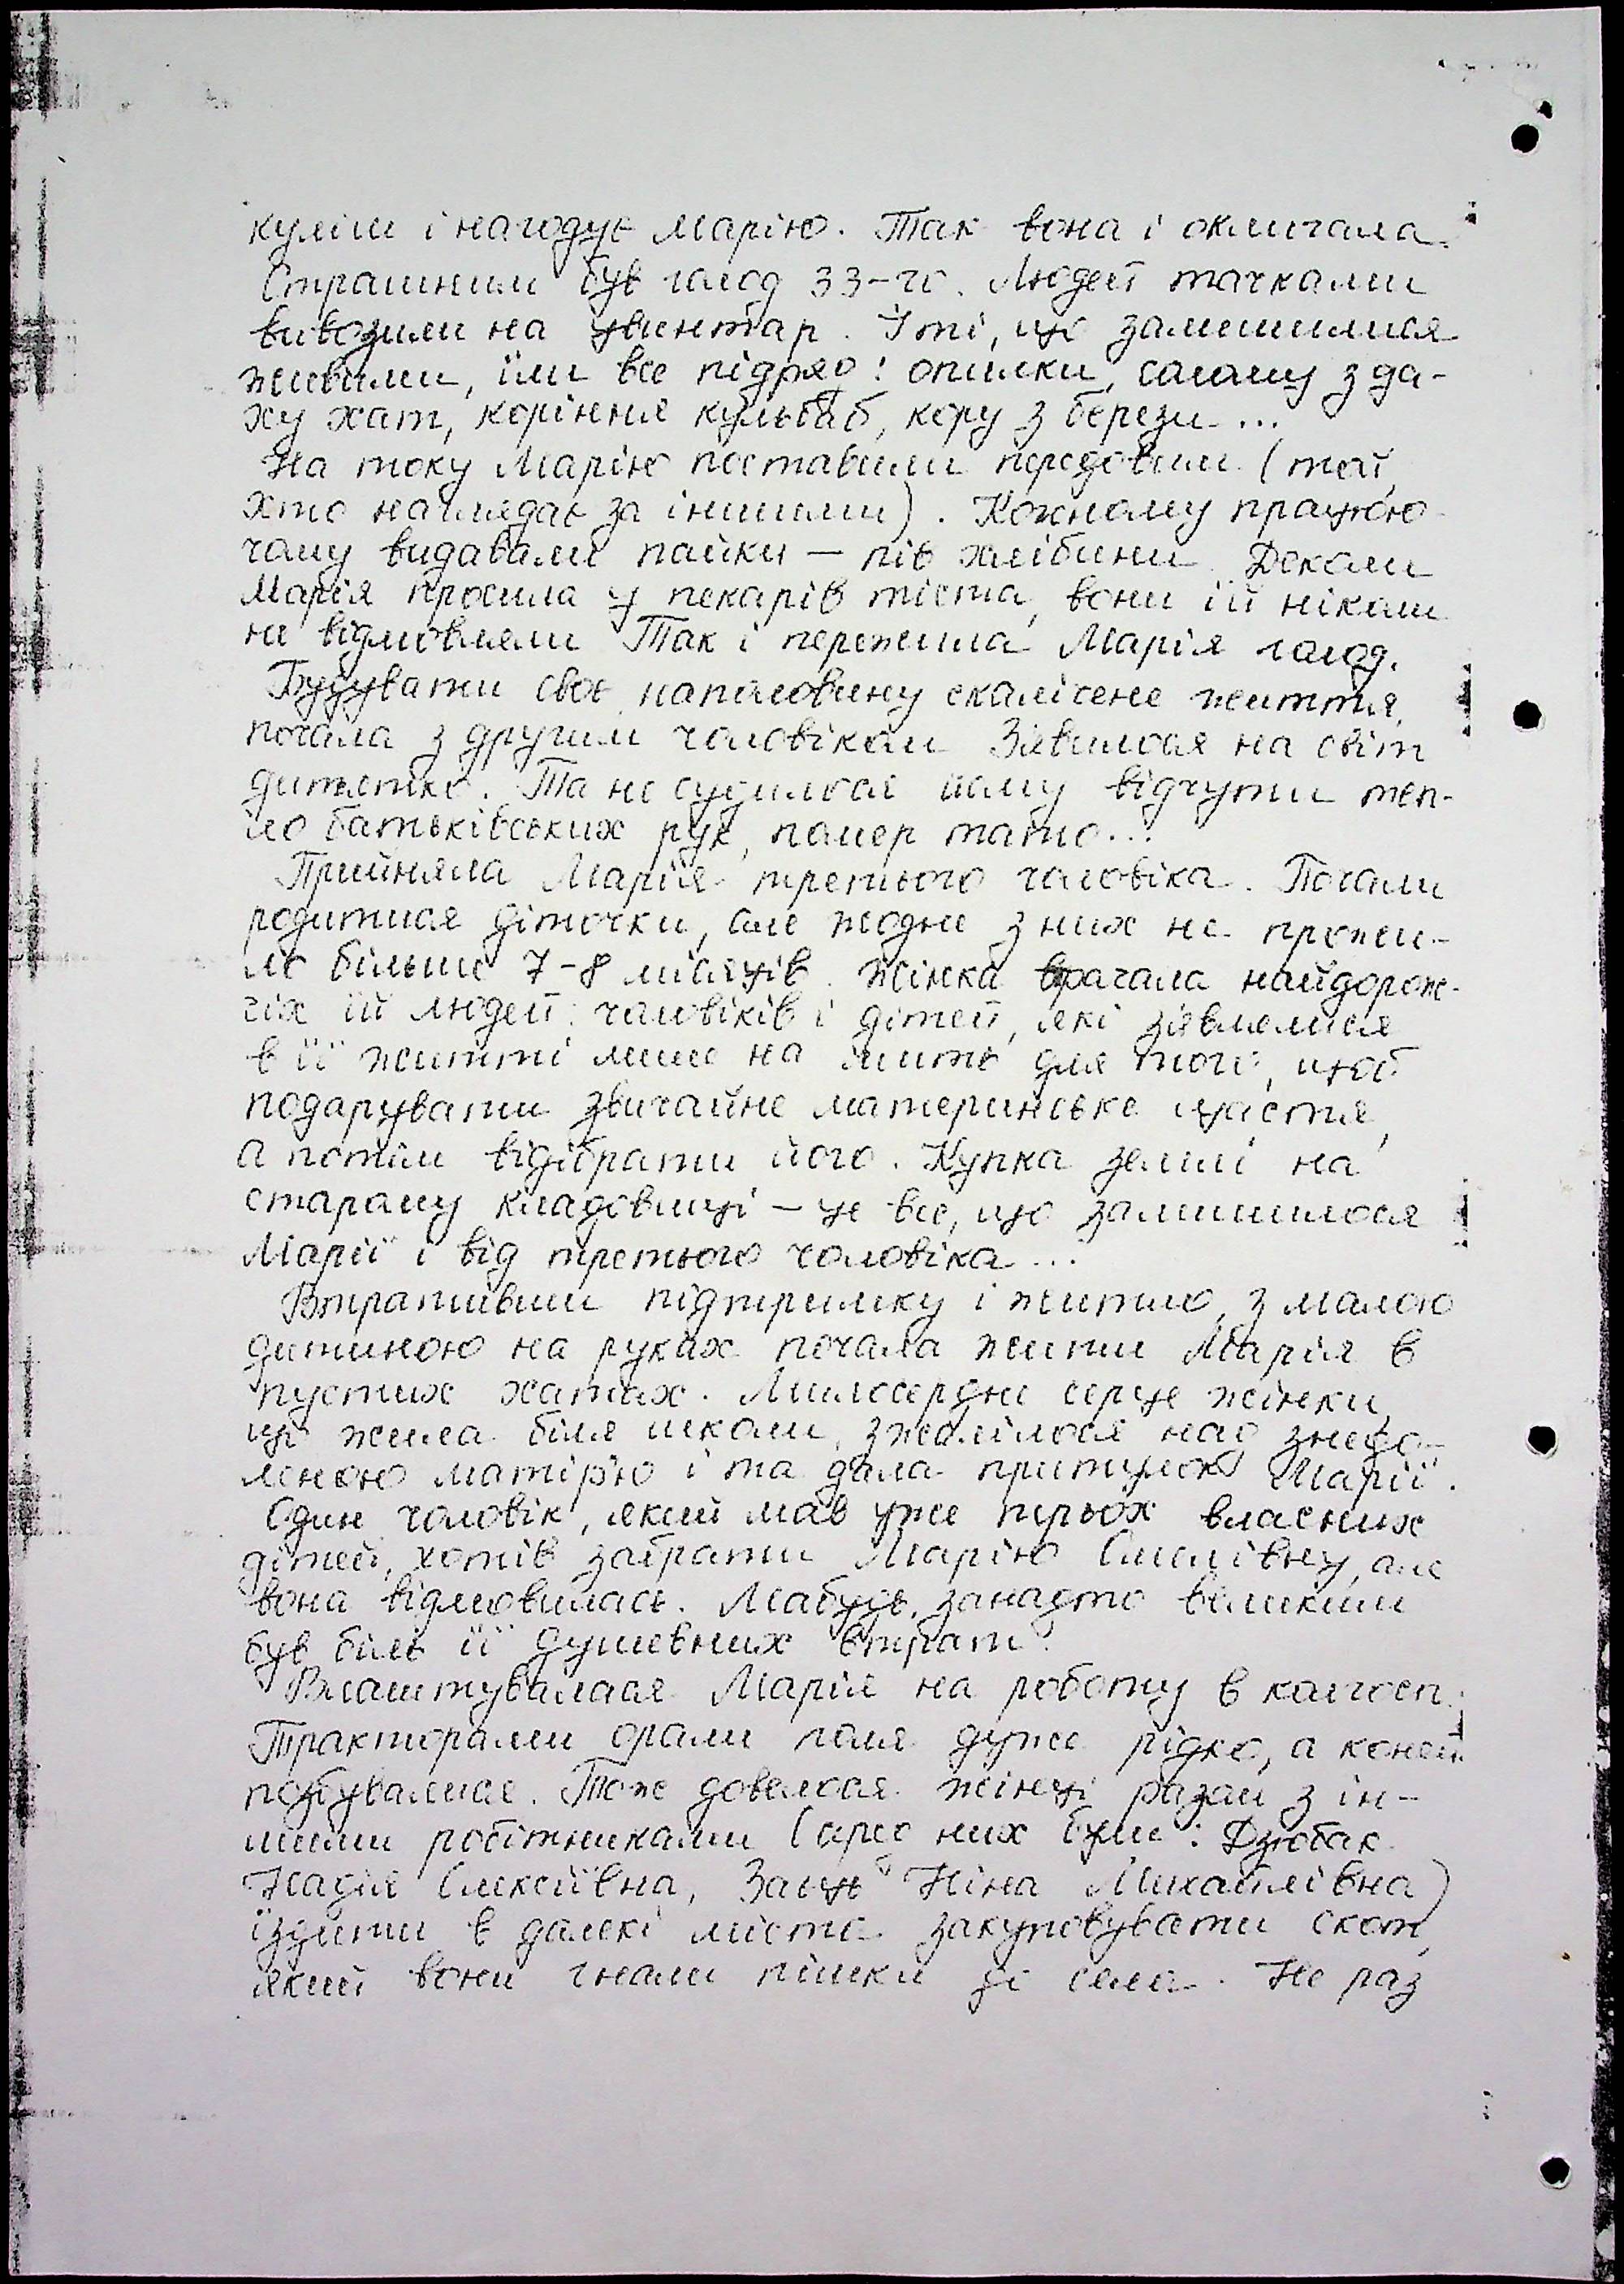 куліш і нагодує Марію. Так вона і оклигала.
Страшним був голод 33-го. Людей тачками
вивозили на цвинтар. Ті, що залишилися
живими, їли все підряд: опилки, солому з да-
ху хат, коріння кульбаб, кору з берези...
На току Марію поставили передовим (той,
хто наглядає за іншими). Кожному працюю-
чому видавали пайки — пів хлібини. Деколи
Марія просила у пекарів тіста, вони їй ніколи
не відмовляли Так і пережила Марія голод.
Будувати своє наполовину скалічене життя
почала з другим чоловіком З'явилося на світ
дитятко. Та не судилося йому відчути теп-
ло батьківських рук, помер тато...
Прийняла Марія третього чоловіка. Почали
родитися діточки, але жодне з них не прожи-
ло більше 7-8 місяців. Жінка втрачала найдорож-
чих їй людей: чоловіків і дітей, які з'являлися
в її житті лише на мить для того, щоб
подарувати звичайне материнське щастя,
а потім відібрати його. Купка землі на
старому кладовищі — це все, що залишилося
Марії і від третього чоловіка...
Втративши підтримку і житло, з малою
дитиною на руках почала жити Марія в
пустих хатах. Милосердне серце жінки,
що жила біля школи, зжалілося над знедо-
леною матір'ю і та дала притулок Марії.
Один чоловік, який мав уже трьох власних
дітей, хотів забрати Марію Омелівну, але
вона відмовилась. Мабуть, занадто великим
був біль її душевних втрат.
Влаштувалася Марія на роботу в колгосп.
Тракторами орали поля дуже рідко, а коней
позбувалися. Тож довелося жінці разом з ін-
шими робітниками (серед них були: Дзюбак
Надія Олексіївна, Заєць Ніна Михайлівна)
їздити в далекі міста закуповувати скот,
який вони гнали пішки до села. Не раз